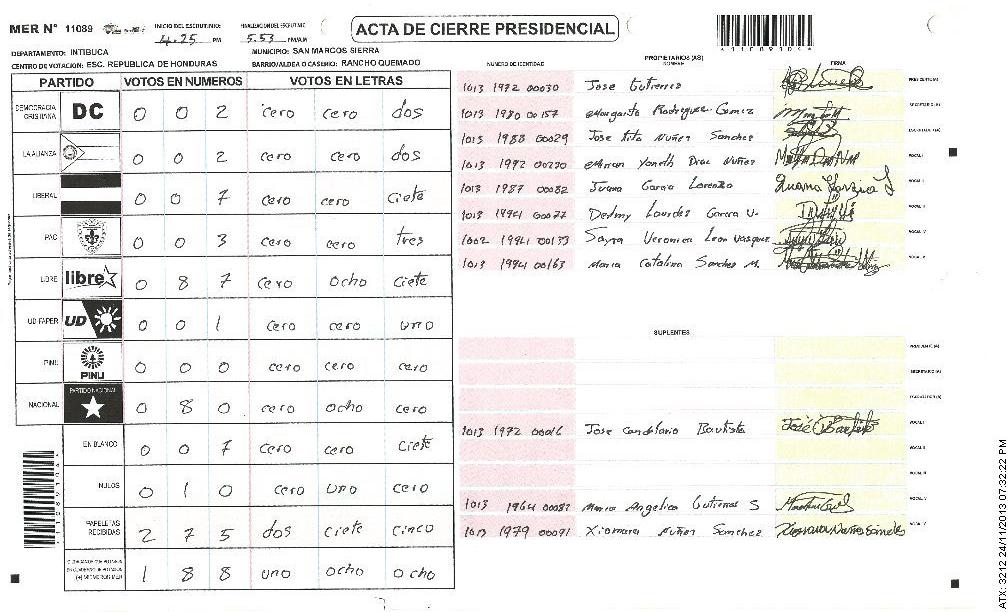 MER Nº 11089
INICIO DEL ESCRUTINIO: 4:25 PM
FINALIZACION DEL ESCRUTINIO 5:53 PM/AM
ACTA DE CIERRE PRESIDENCIAL
DEPARTAMENTO: INTIBUCA
MUNICIPIO: SAN MARCOS SIERRA
CENTRO DE VOTACION: ESC. REPUBLICA DE HONDURAS
BARRIO/ALDEA O CASERIO: RANCHO QUEMADO
PARTIDO VOTOS EN NUMEROS VOTOS EN LETRAS
DEMOCRACIA CRISTIANA DC 0 0 2 cero cero dos
LA ALIANZA 0 0 2 cero cero dos
LIBERAL 0 0 7 cero cero ciete
PAC 0 0 3 cero cero tres
LIBRE libre 0 8 7 cero ocho ciete
UD FAPER UD 0 0 1 cero cero uno
PINU PINU 0 0 0 cero cero cero
NACIONAL PARTIDO NACIONAL 0 8 0 cero ocho cero
EN BLANCO 0 0 7 cero cero ciete
NULOS 0 1 0 cero uno cero
PAPELETAS RECIBIDAS 2 7 5 dos ciete cinco
1 8 8 uno ocho ocho
NUMERO DE IDENTIDAD
PROPIETARIOS (AS)
NOMBRE
FIRMA
1013 1972 00030 Jose Gutierres
1013 1980 00157 Margarito Rodriguez Gomez
1013 1988 00029 Jose Tito Nuñez Sanchez
1013 1992 00230 Miriam Yaneth Diaz Nuñez
1013 1987 00082 Juana Garcia Lorenzo
1013 1994 00077 Delmy Lourdes Garcia V.
1002 1994 00133 Sayra Veronica Leon Vasquez
1013 1994 00163 Maria Catalina Sanchez M.
SUPLENTES
1013 1972 00016 Jose Candelario Bautista
1013 1964 00082 Maria Angelica Gutierres S
1013 1979 00091 Xiomara Nuñez Sanchez
ATX: 3212 24/11/2013 07:32:22 PM